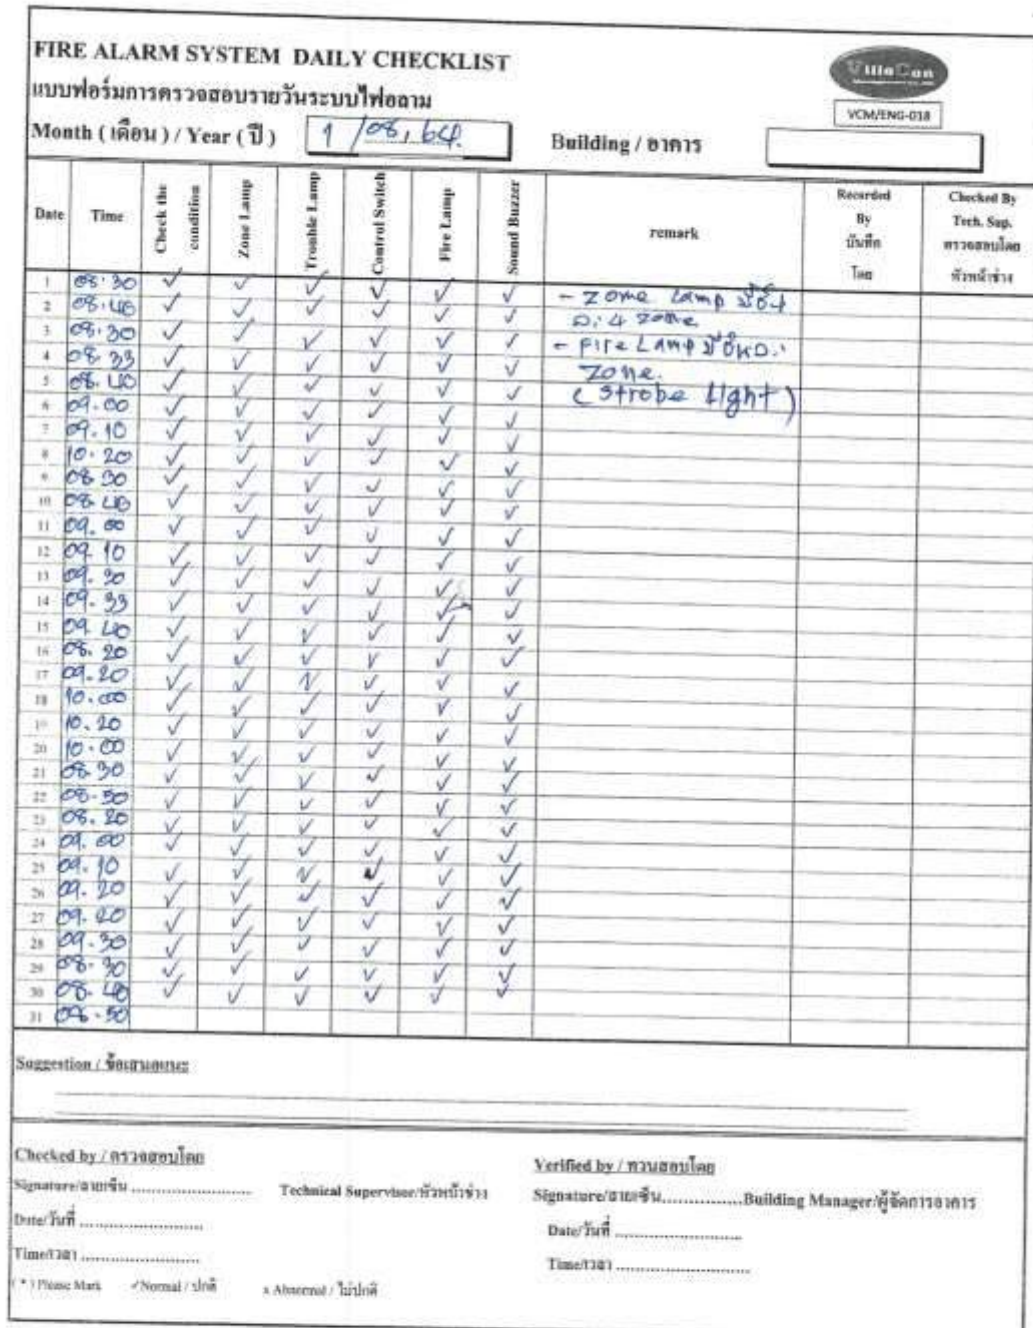 FIRE ALARM SYSTEM DAILY CHECKLIST
แบบฟอร์มการตรวจสอบรายวันระบบไฟอลาม
VCM/ENG-018
Month ( เดือน ) / Year ( ปี ) 1 / 08, 64.
Building / อาคาร
Date Time Check the condition Zone Lamp Trouble Lamp Control Switch Fire Lamp Sound Buzzer remark Recorded By บันทึก โดย Checked By Tech. Sup. ตรวจสอบโดย หัวหน้าช่าง
1 08.30 ✓ ✓ ✓ ✓ ✓ ✓ - Zone Lamp
2 08.40 ✓ ✓ ✓ ✓ ✓ ✓ 4 zone
3 08.30 ✓ ✓ ✓ ✓ ✓ ✓ - Fire Lamp
4 08.33 ✓ ✓ ✓ ✓ ✓ ✓ Zone.
5 08.40 ✓ ✓ ✓ ✓ ✓ ✓ (Strobe Light)
6 09.00 ✓ ✓ ✓ ✓ ✓ ✓
7 09.10 ✓ ✓ ✓ ✓ ✓ ✓
8 10.20 ✓ ✓ ✓ ✓ ✓ ✓
9 08.30 ✓ ✓ ✓ ✓ ✓ ✓
10 08.40 ✓ ✓ ✓ ✓ ✓ ✓
11 09.00 ✓ ✓ ✓ ✓ ✓ ✓
12 09.10 ✓ ✓ ✓ ✓ ✓ ✓
13 09.30 ✓ ✓ ✓ ✓ ✓ ✓
14 09.33 ✓ ✓ ✓ ✓ ✓ ✓
15 09.40 ✓ ✓ ✓ ✓ ✓ ✓
16 08.20 ✓ ✓ ✓ ✓ ✓ ✓
17 09.20 ✓ ✓ ✓ ✓ ✓ ✓
18 10.00 ✓ ✓ ✓ ✓ ✓ ✓
19 10.20 ✓ ✓ ✓ ✓ ✓ ✓
20 10.00 ✓ ✓ ✓ ✓ ✓ ✓
21 08.30 ✓ ✓ ✓ ✓ ✓ ✓
22 08.50 ✓ ✓ ✓ ✓ ✓ ✓
23 08.20 ✓ ✓ ✓ ✓ ✓ ✓
24 09.00 ✓ ✓ ✓ ✓ ✓ ✓
25 09.10 ✓ ✓ ✓ ✓ ✓ ✓
26 09.20 ✓ ✓ ✓ ✓ ✓ ✓
27 09.20 ✓ ✓ ✓ ✓ ✓ ✓
28 09.30 ✓ ✓ ✓ ✓ ✓ ✓
29 08.30 ✓ ✓ ✓ ✓ ✓ ✓
30 08.40 ✓ ✓ ✓ ✓ ✓ ✓
31 08.50
Suggestion / ข้อเสนอแนะ
Checked by / ตรวจสอบโดย
Signature/ลายเซ็น .......................... Technical Supervisor/หัวหน้าช่าง
Date/วันที่ ..........................
Time/เวลา ..........................
Verified by / ทวนสอบโดย
Signature/ลายเซ็น..................Building Manager/ผู้จัดการอาคาร
Date/วันที่ ..........................
Time/เวลา ..........................
( * ) Please Mark ✓Normal / ปกติ x Abnormal / ไม่ปกติ